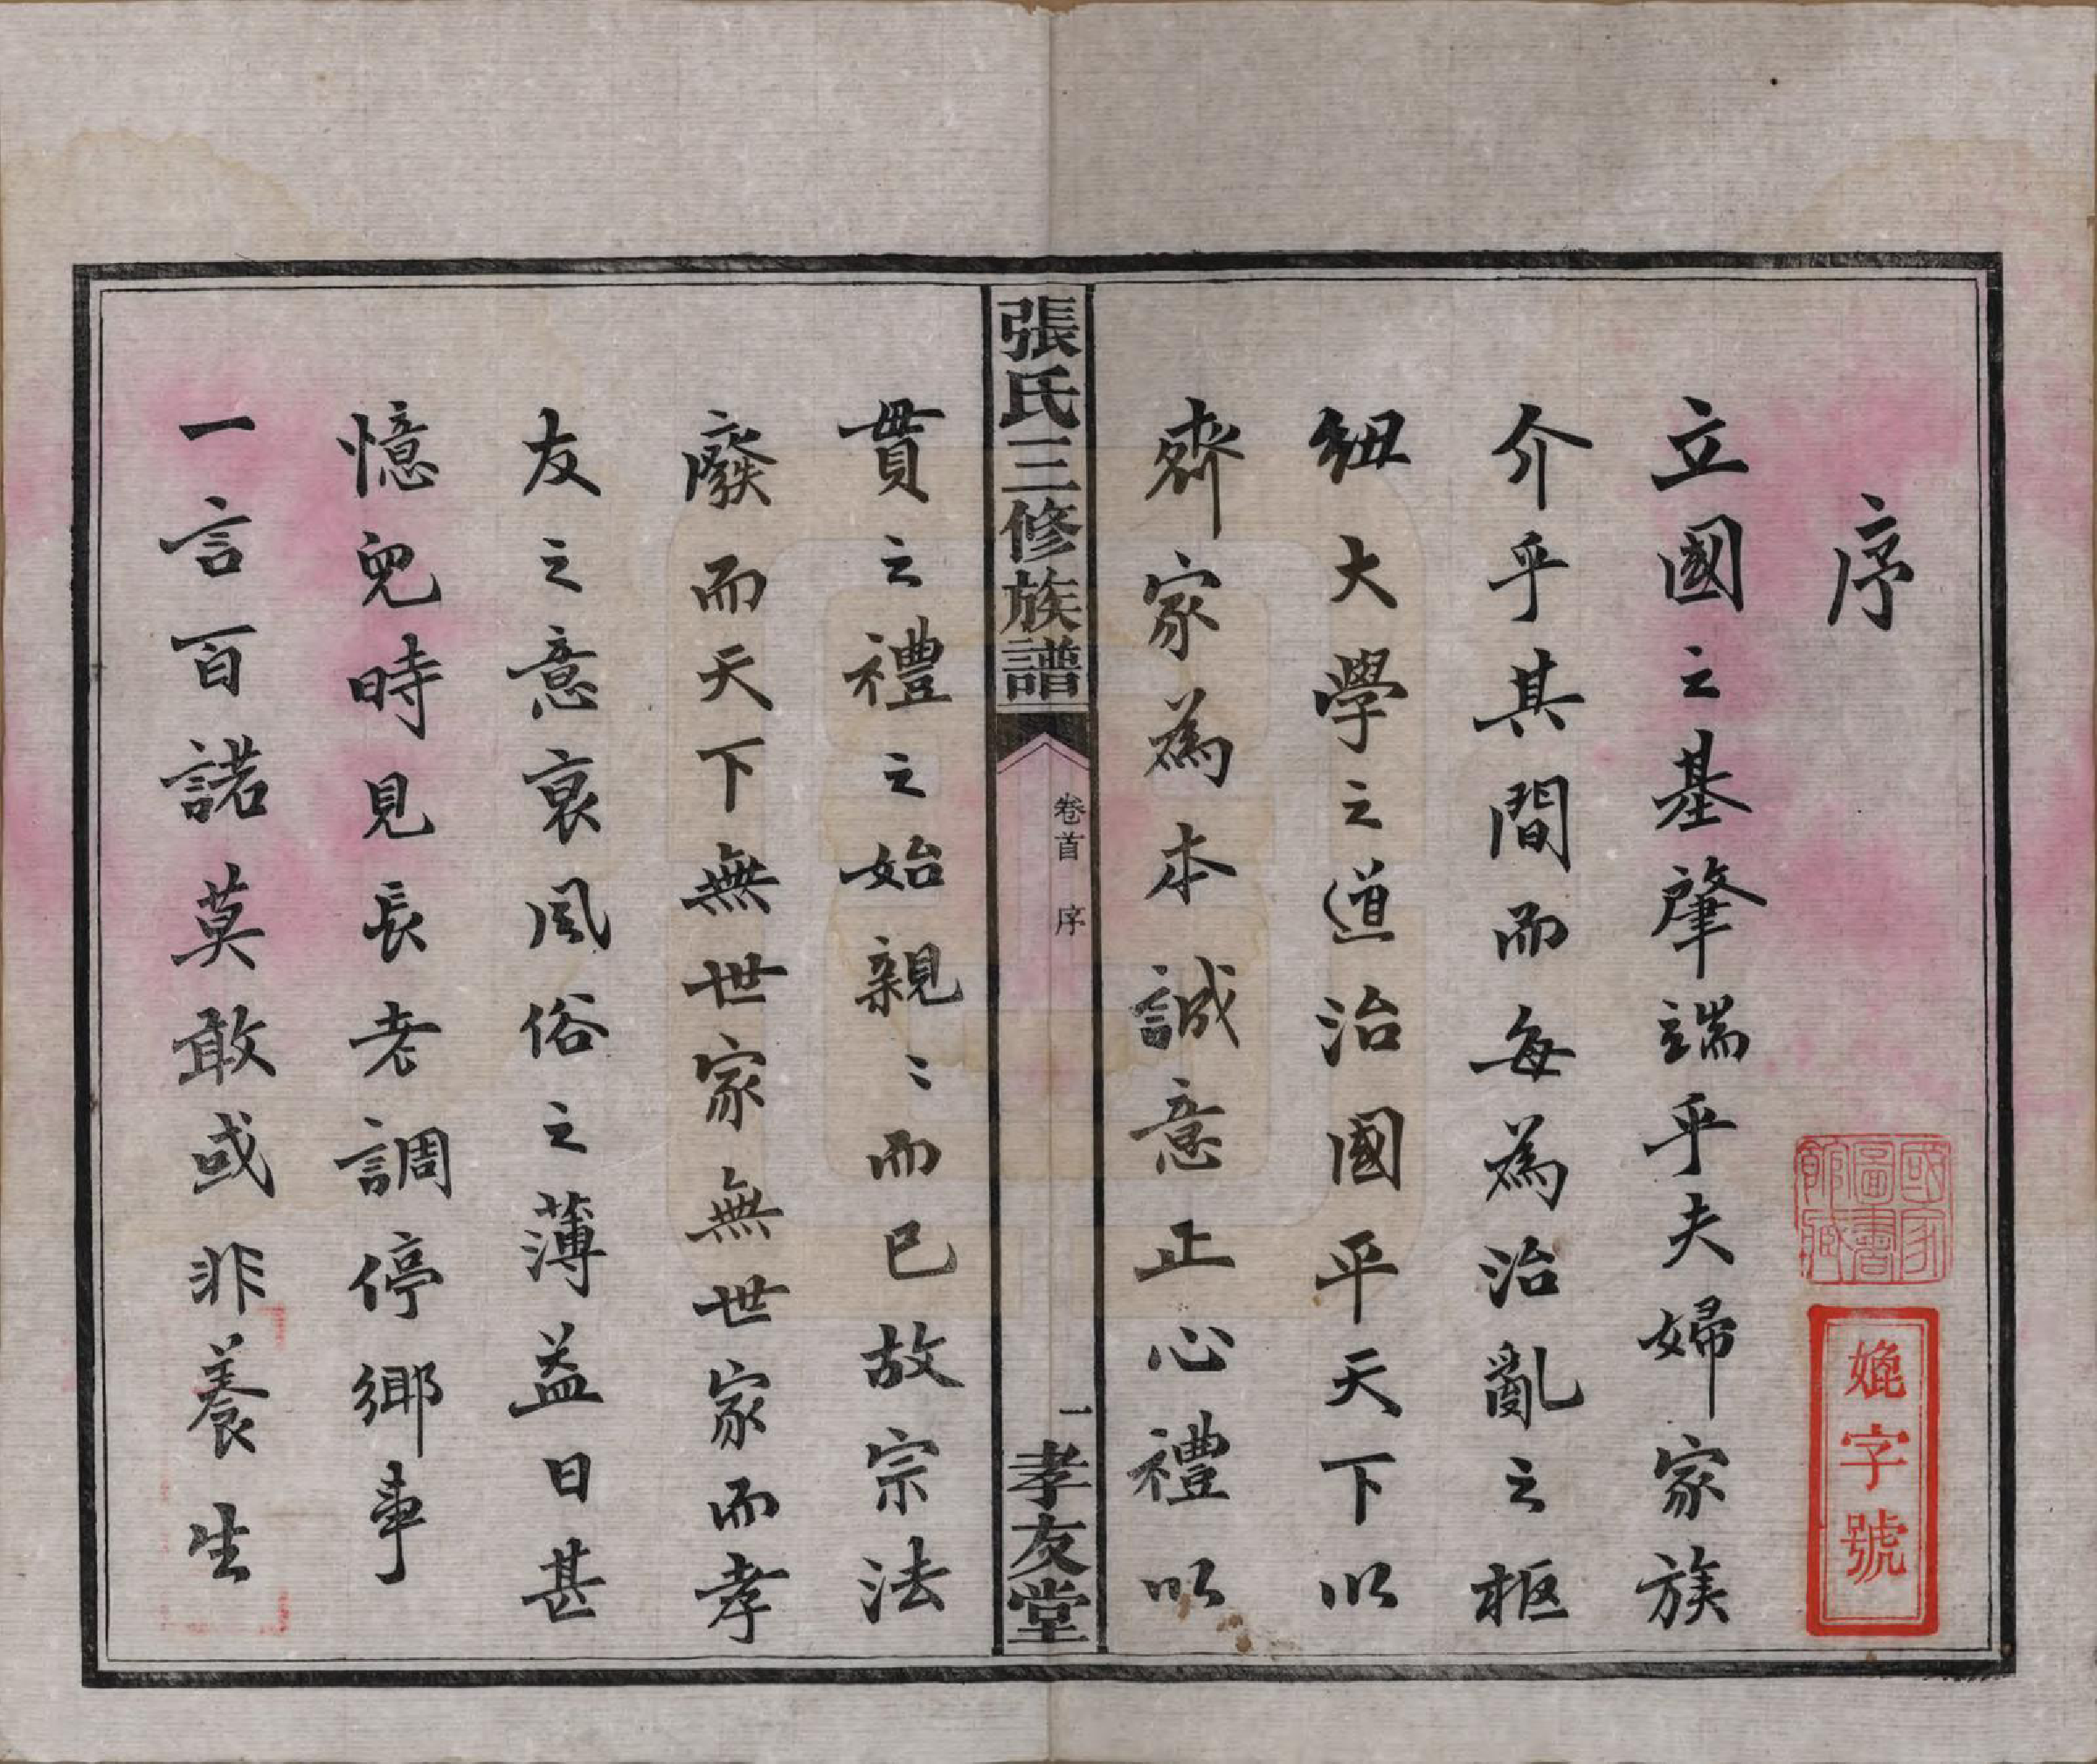 序
立國之基肇端乎夫婦家族
介乎其間而每為治亂之枢
紐大學之道治國平天下以
齊家為本誠意正心禮以
張氏三修族譜
卷首 序
一
孝友堂
貫之禮之始親〻而已故宗法
廢而天下無世家無世家而孝
友之意衰風俗之薄益日甚
憶兒時見長老調停鄉事
一言百諾莫敢或非養生
國家圖書館藏
字號